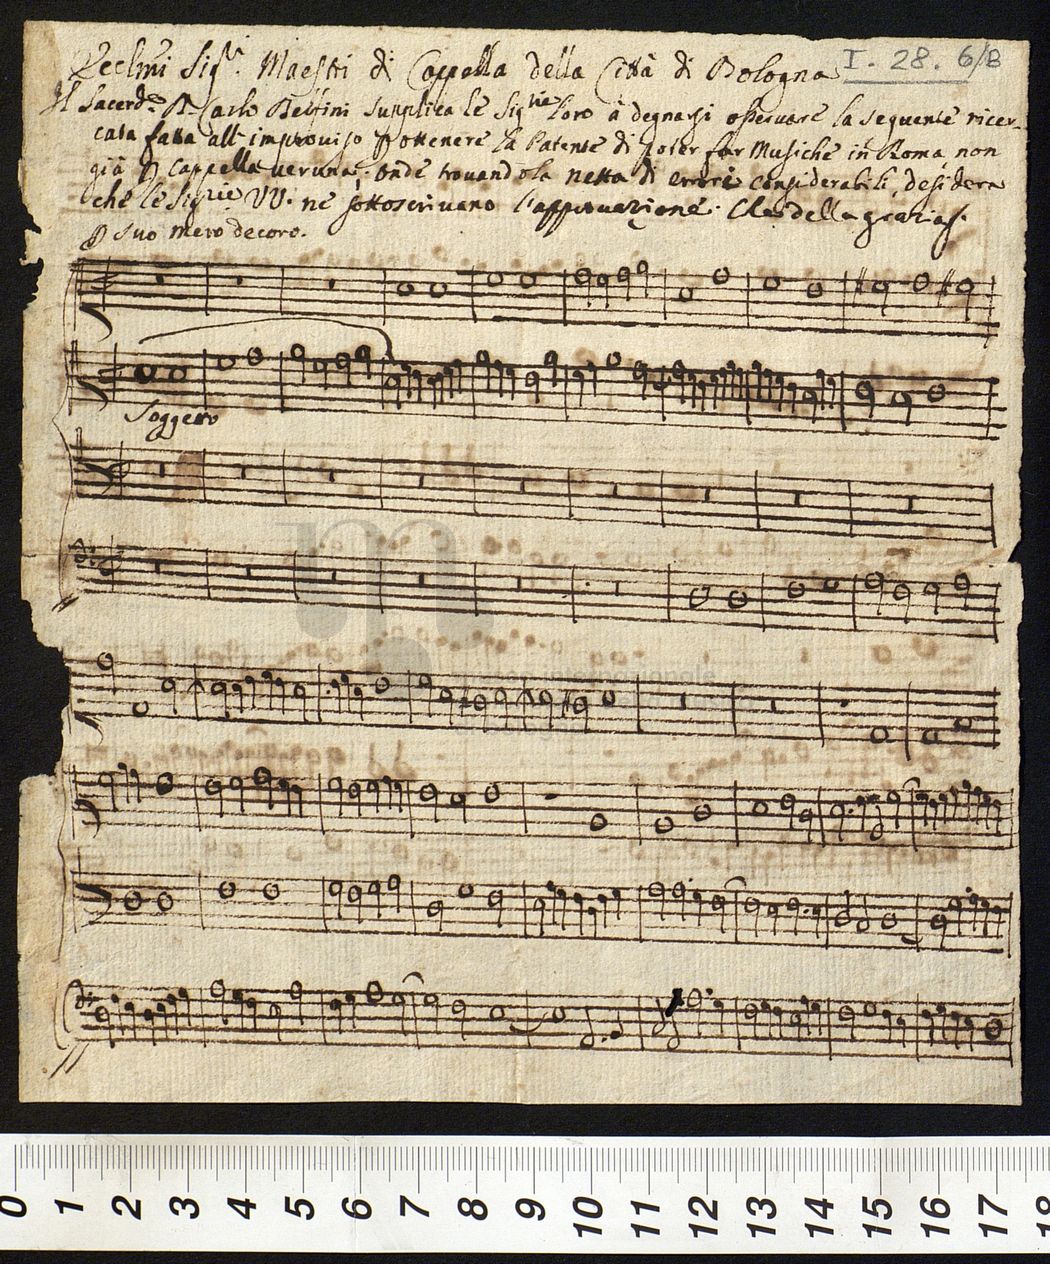 Ecclmi Sigri Maestri di Cappella della Città di Bologna
I. 28. 6/8
Il Sacerde D. Carlo Belfini supplica le Sigrie loro à degnarsi osservare la seguente ricer-
cata fatta all'improviso p ottenere la Patente di poter far Musiche in Roma, non
già p Cappella veruna; onde trovandola netta di errori considerabili, desidera
che le Sigrie VV. ne sottoscrivano l'approvazione. Che della grazia
p suo mero decoro.
Soggetto
internazionale
0 1 2 3 4 5 6 7 8 9 10 11 12 13 14 15 16 17 18